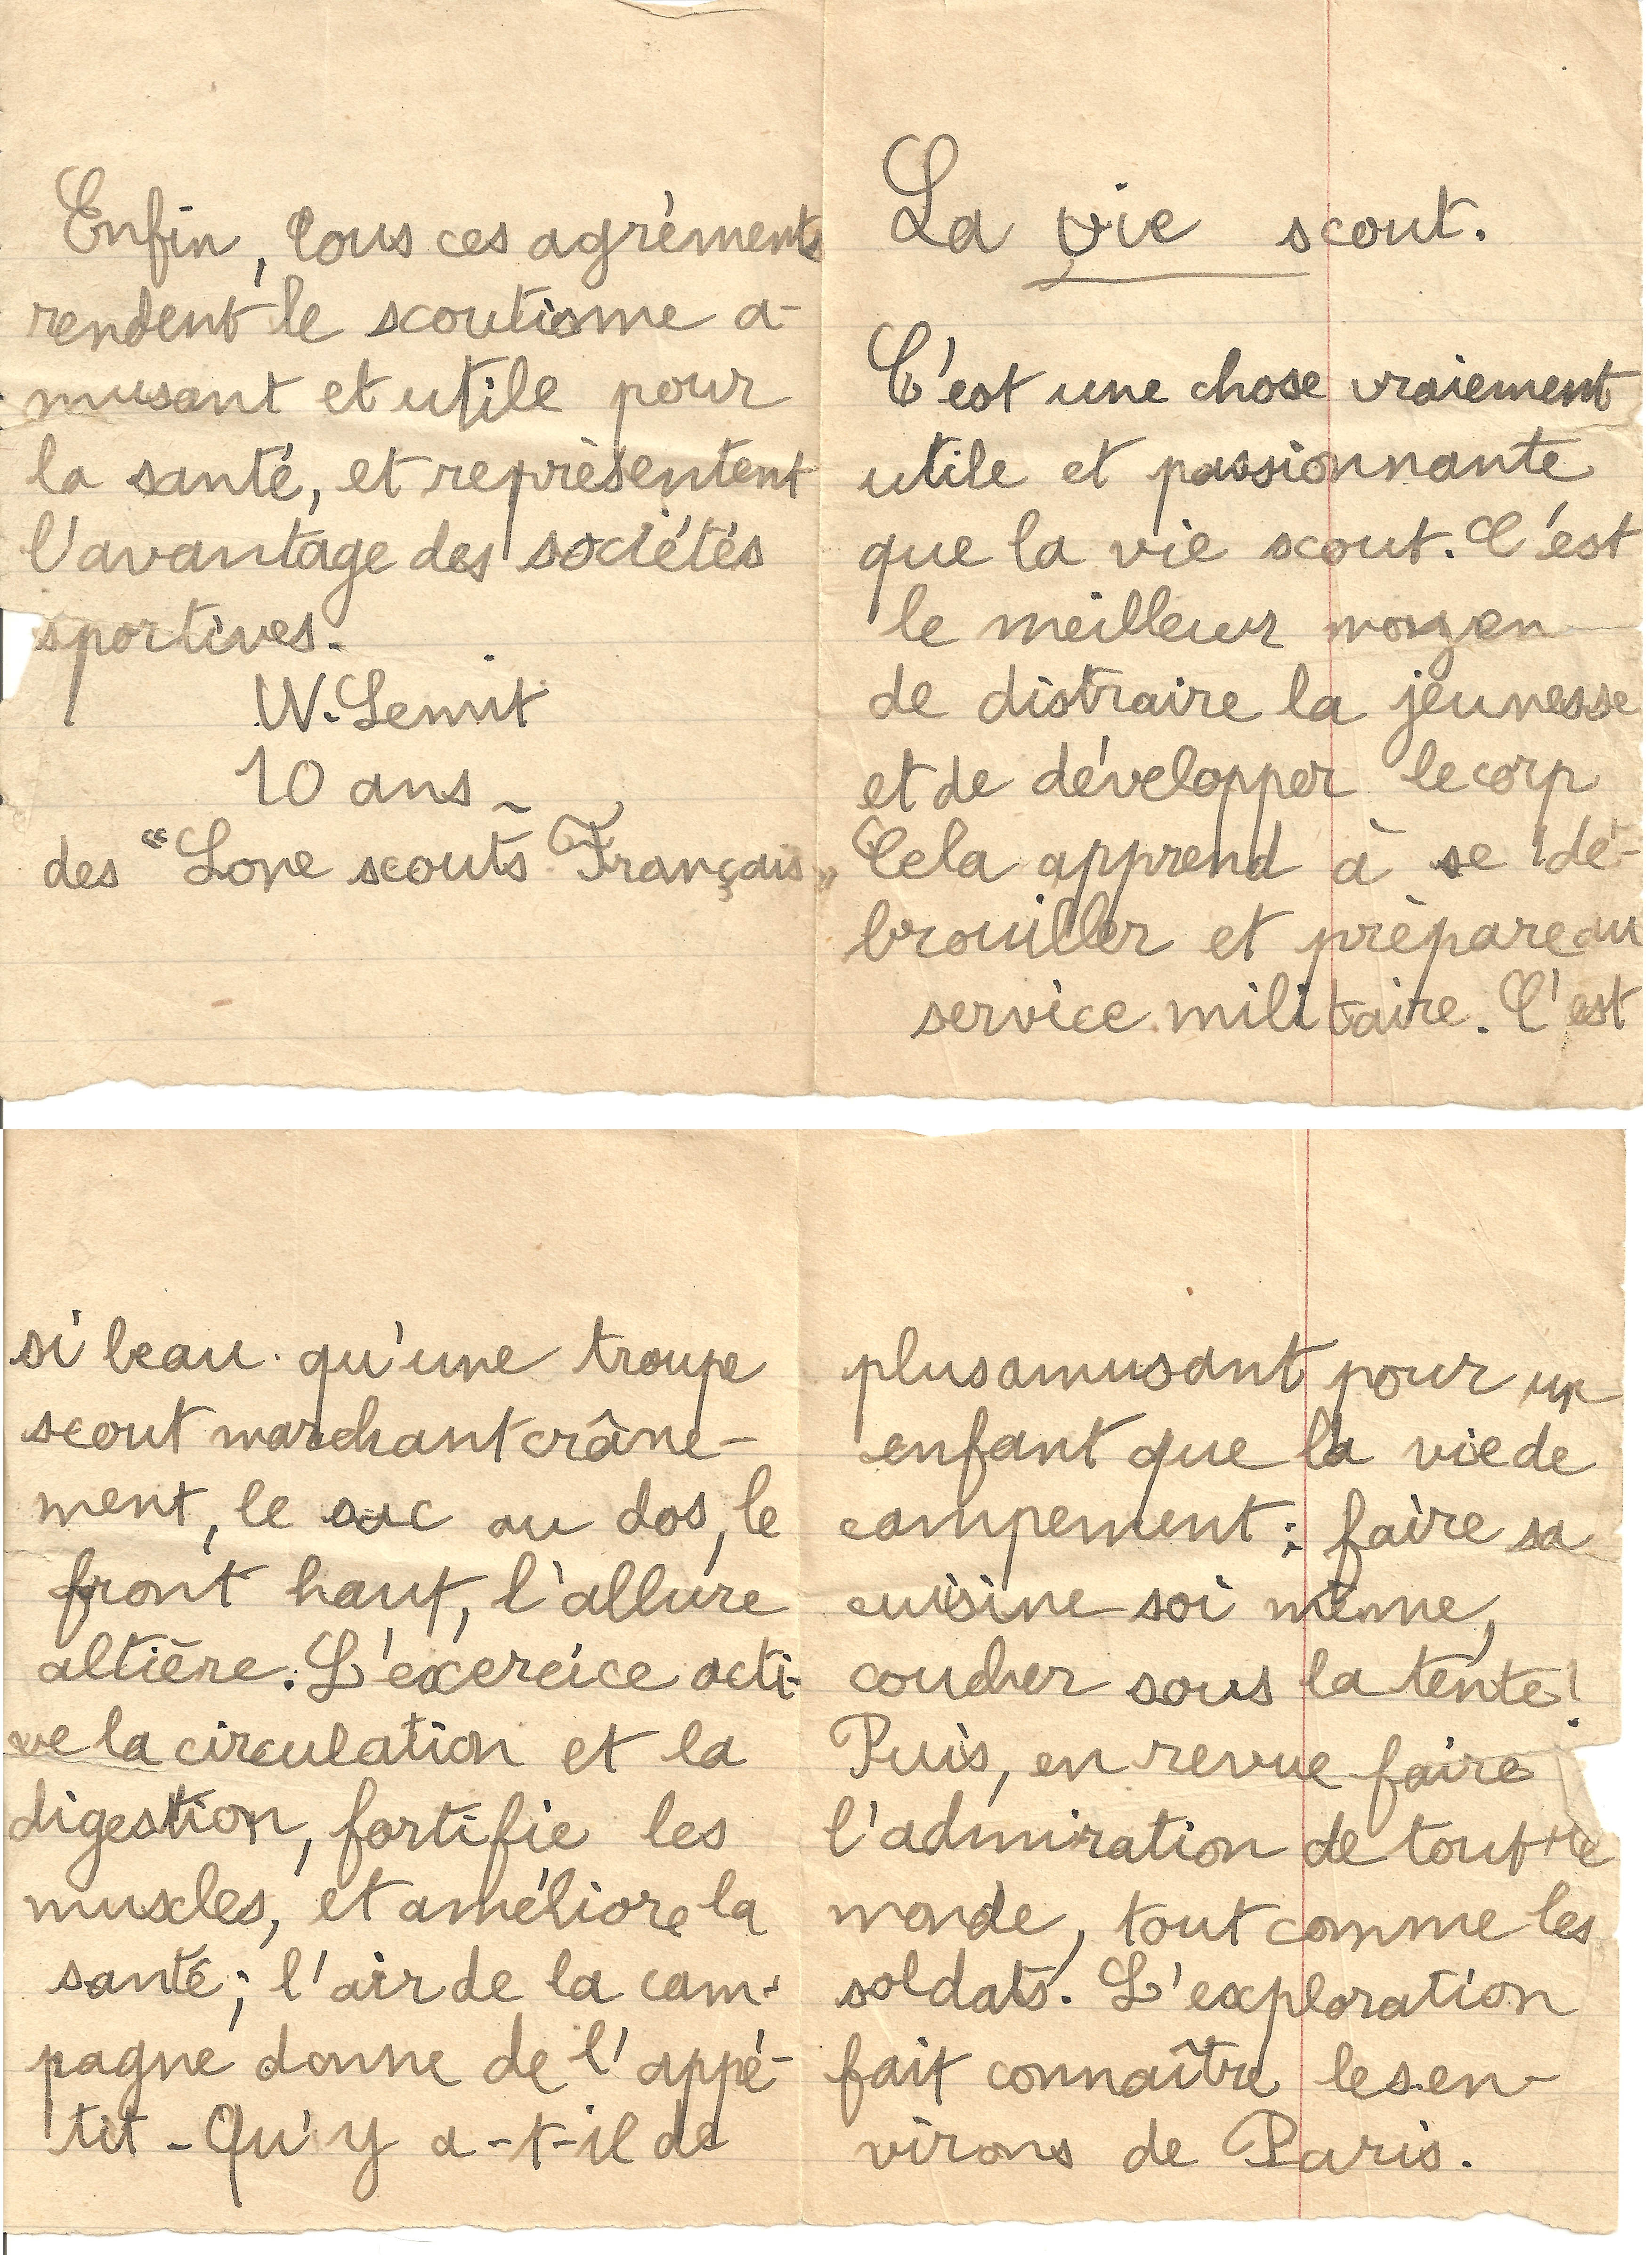 La vie scout.
C'est une chose vraiement
utile et passionnante
que la vie scout. C'est
le meilleur moyen
de distraire la jeunesse
et de développer le corp
Cela apprend à se dé-
brouiller et prèpare au
service militaire. C'est
si beau qu'une troupe
scout marchant crâne-
ment, le sac au dos, le
front haut, l'allure
altière. L'exercice acti-
ve la circulation et la
digestion, fortifie les
muscles, et améliore la
santé; l'air de la cam-
pagne donne de l'appé-
tit - Qu'y a-t-il de
plus amusant pour un
enfant que la vie de
campement : faire sa
cuisine soi même,
coucher sous la tente!
Puis, en revue faire
l'admiration de tout le
monde, tout comme les
soldats. L'exploration
fait connaître les en-
virons de Paris.
Enfin, tous ces agréments
rendent le scoutisme a-
musant et utile pour
la santé, et reprèsentent
l'avantage des sociétés
sportives.
W. Lemit
10 ans
des "Lone scouts Français"